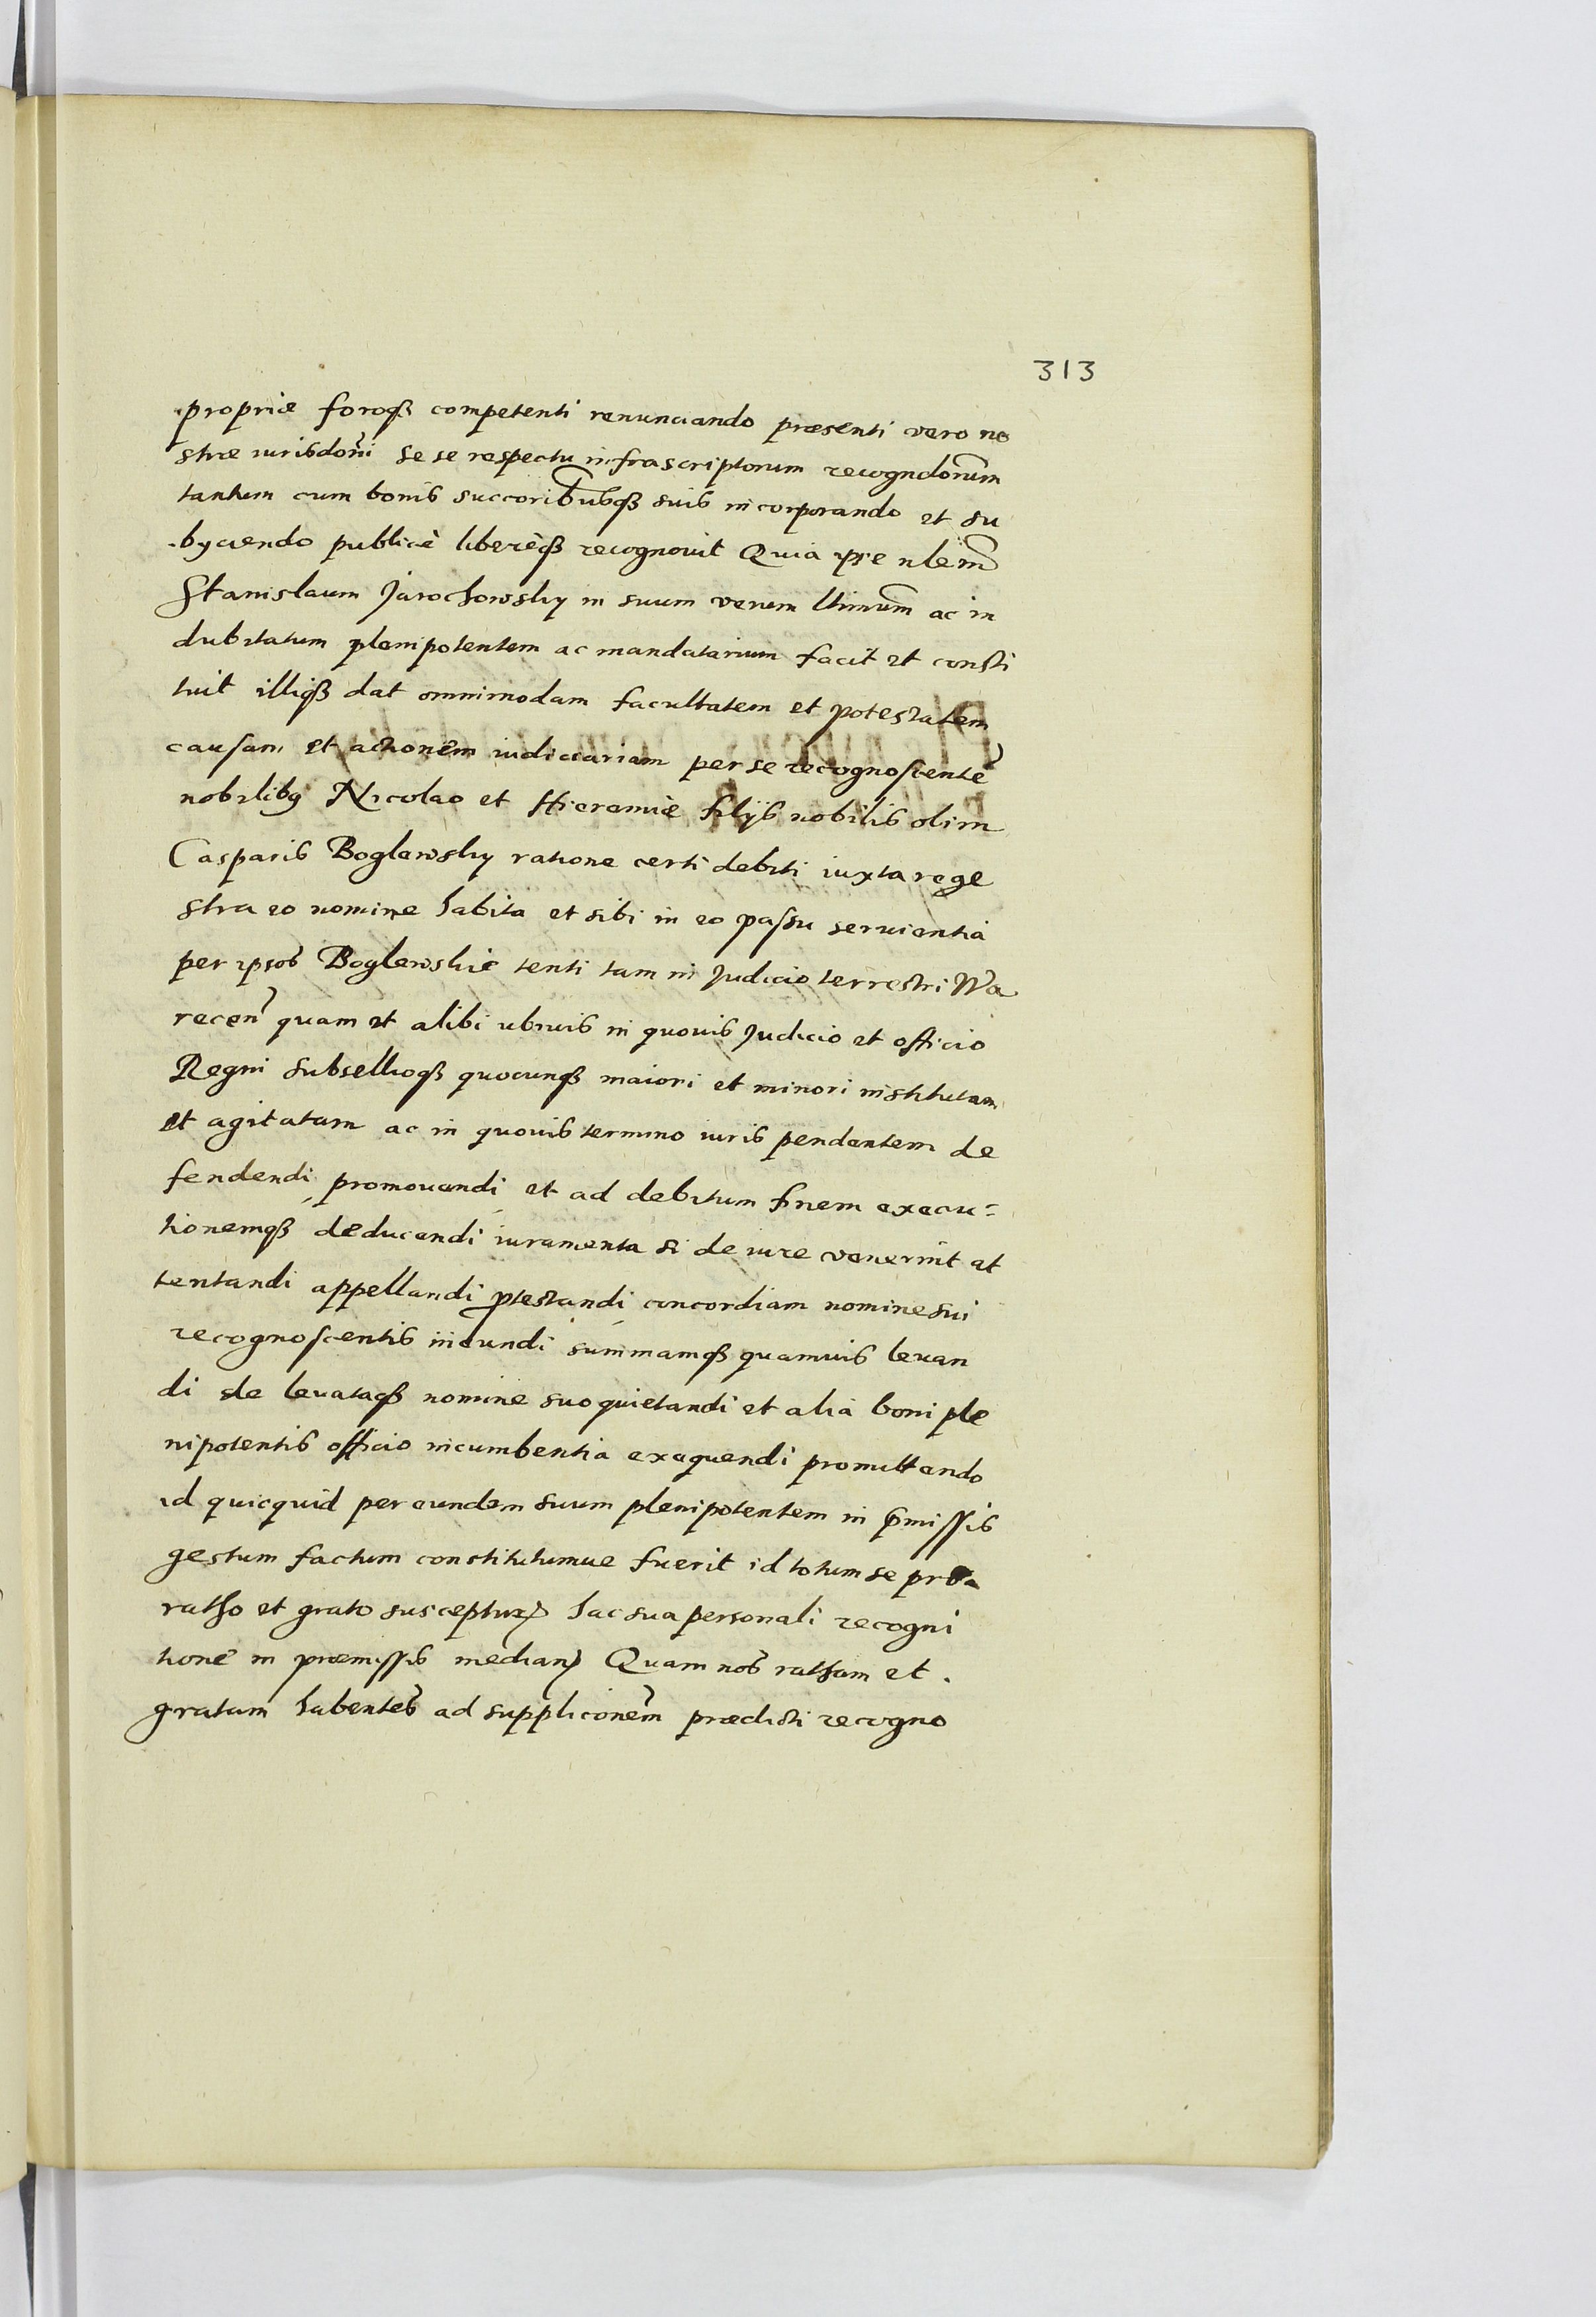 313
propriæ foroqß competenti renunciando præsenti vero no
stræ iurisdoni se se respectu infrascriptorum recogndonum
tantum cum bonis succoribusqß suis incorporando et su
byciendo publicè liberèqß recognouit Quia ipse nlem
Stanislaum Jarochowsky in suum verum ltimum ac in
dubitatum plenipotentem ac mandatarium facit et consti
tuit illiqß dat omnimodam facultatem et potestatem
causam et actionem iudiciariam per se recognoscente
nobilibq Nicolao et Hieremiæ filijs nobilis olim
Casparis Boglewsky ratione certi debiti iuxta rege
stra eo nomine habita et sibi in eo passu seruientia
per ipsos Boglewskie tenti tam in Judicio terrestri Wa
recen quam et alibi ubiuis in quouis Judicio et officio
Regni subsellioqß quocunqß maiori et minori institutam
et agitatam ac in quouis termino iuris pendentem de
fendendi promouendi et ad debitum finem execu=
tionemqß deducendi iuramenta si de iure venerint at
tentandi appellandi ptestandi concordiam nomine sui
recognoscentis ineundi summamqß quamuis leuan
di de leuataqß nomine suo quietandi et alia boni ple
nipotentis officio incumbentia exequendi promittendo
id quicquid per eundem suum plenipotentem in pmissis
gestum factum constitutumue fuerit id totum se pro
ratho et grato suscepturum hac sua personali recogni
tione in præmissis median Quam nos ratham et
gratam habentes ad suppliconem prædicti recogno